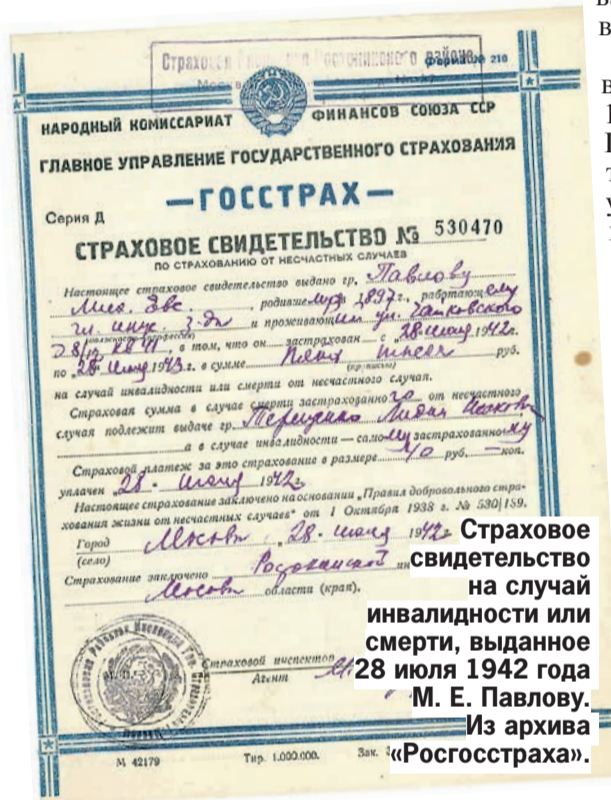 Страховая Ростокинского района
Форма № 210
НАРОДНЫЙ КОМИССАРИАТ ФИНАНСОВ СОЮЗА ССР
ГЛАВНОЕ УПРАВЛЕНИЕ ГОСУДАРСТВЕННОГО СТРАХОВАНИЯ
—ГОССТРАХ—
Серия Д
СТРАХОВОЕ СВИДЕТЕЛЬСТВО № 530470
ПО СТРАХОВАНИЮ ОТ НЕСЧАСТНЫХ СЛУЧАЕВ
Настоящее страховое свидетельство выдано гр. Павлову
Мих. Евс. родивше муся 1897 г., работающ ему
гл. инж. з-да и проживающим ул. Чайковского
в том, что он застрахован с "28 июля 1942 г.
по 28 июля 1943 г. в сумме Пять тысяч руб.
(прописью)
на случай инвалидности или смерти от несчастного случая.
Страховая сумма в случае смерти застрахованного от несчастного
случая подлежит выдаче гр. Терещенко Лидии
а в случае инвалидности — самому застрахованному
Страховой платеж за это страхование в размере руб. — коп.
уплачен 28 июля 1942 г.
Настоящее страхование заключено на основании „Правил добровольного стра-
хования жизни от несчастных случаев" от 1 Октября 1938 г. № 530/189.
Город Москва „28" июля 1942 г.
(село)
Страхование заключено Ростокинской
Москов области (края).
Страховой инспектор
Агент
М 42179 Тир. 1.000.000. Зак.
Страховое
свидетельство
на случай
инвалидности или
смерти, выданное
28 июля 1942 года
М. Е. Павлову.
Из архива
«Росгосстраха».